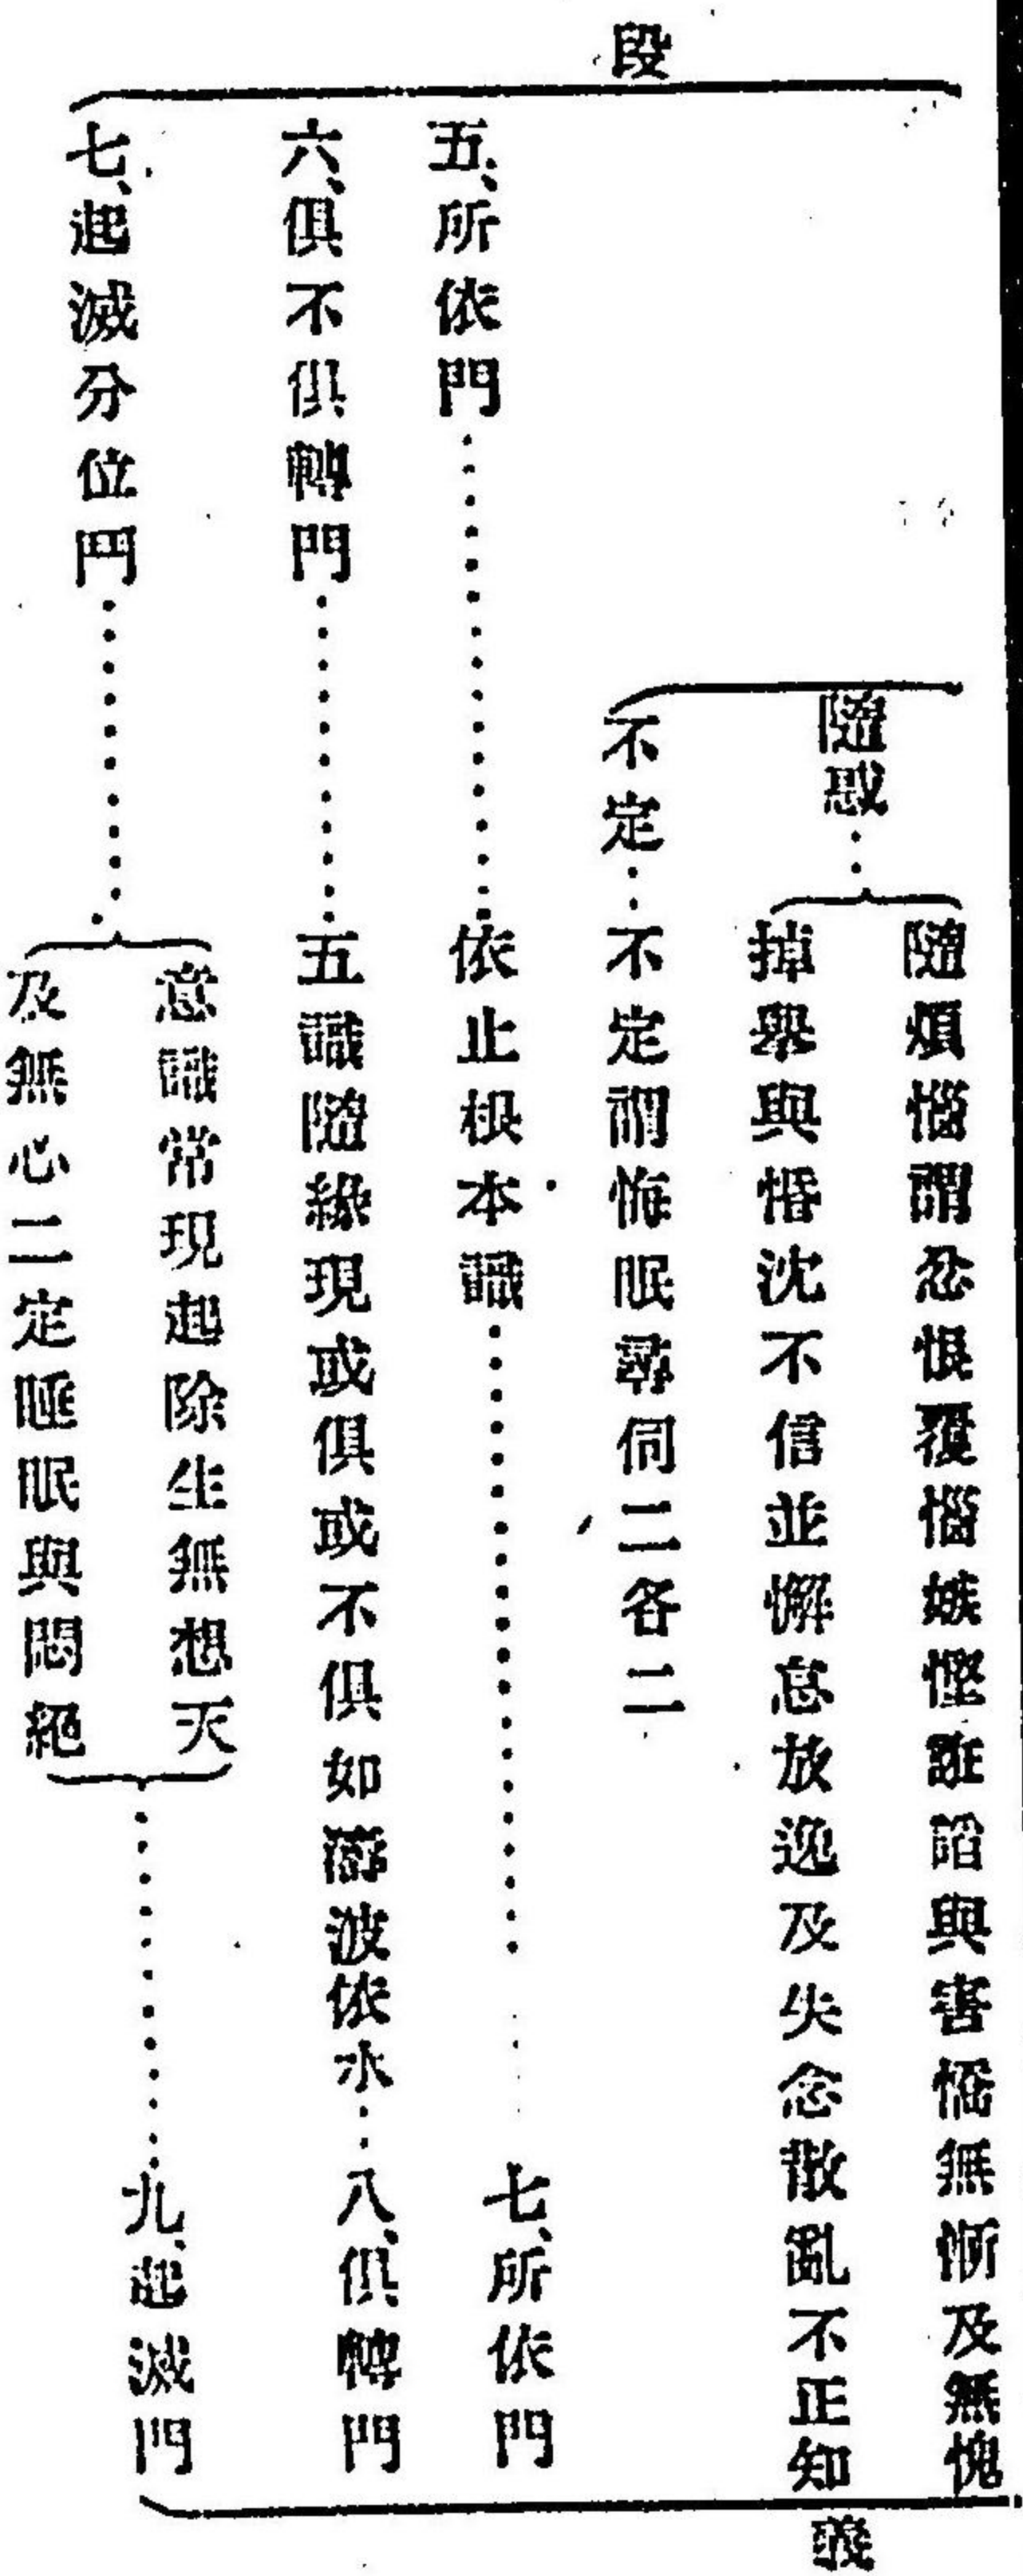 段
隨惑
隨煩惱謂忿恨覆惱嫉慳誑諂與害憍無慚及無愧
掉舉與惛沈不信並懈怠放逸及失念散亂不正知
不定
不定謂悔眠尋伺二各二
五、所依門
依止根本識
七、所依門
六、俱不俱轉門
五識隨緣現或俱或不俱如濤波依水
八、俱轉門
七、起滅分位門
意識常現起除生無想天
及無心二定睡眠與悶絕
九、起滅門
義